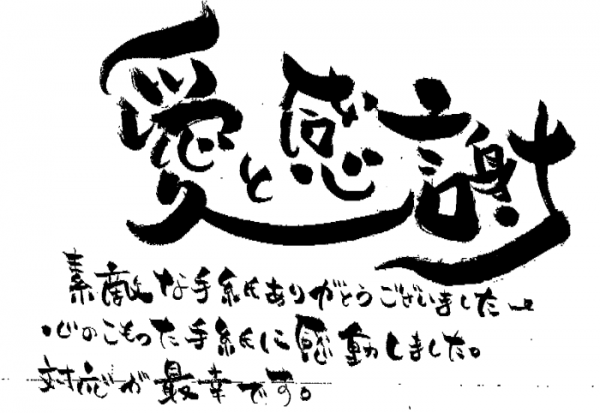 愛と感謝
素敵な手紙ありがとうございました
心のこもった手紙に感動しました。
対応が最幸です。